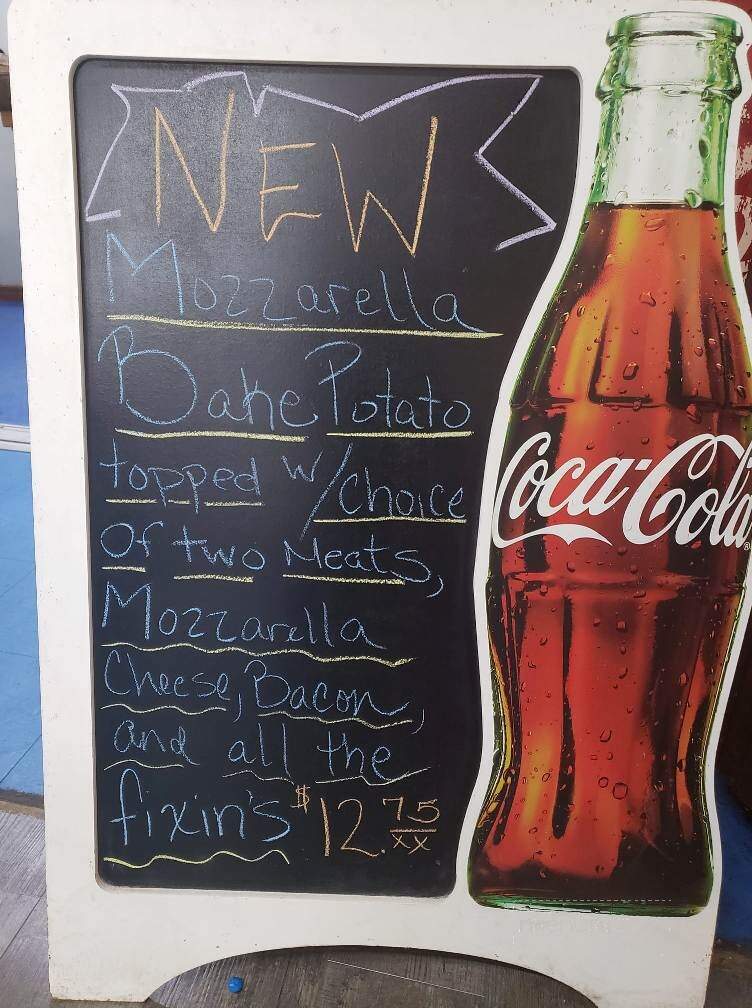 NEW
Mozzarella
Bake Potato
topped w/choice
of two Meats,
Mozzarella
Cheese, Bacon,
and all the
fixin's $12.75
xx
Coca-Cola